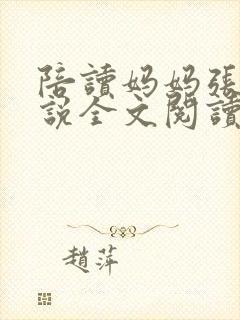 陪讀媽媽張
說全文閱讀
趙萍